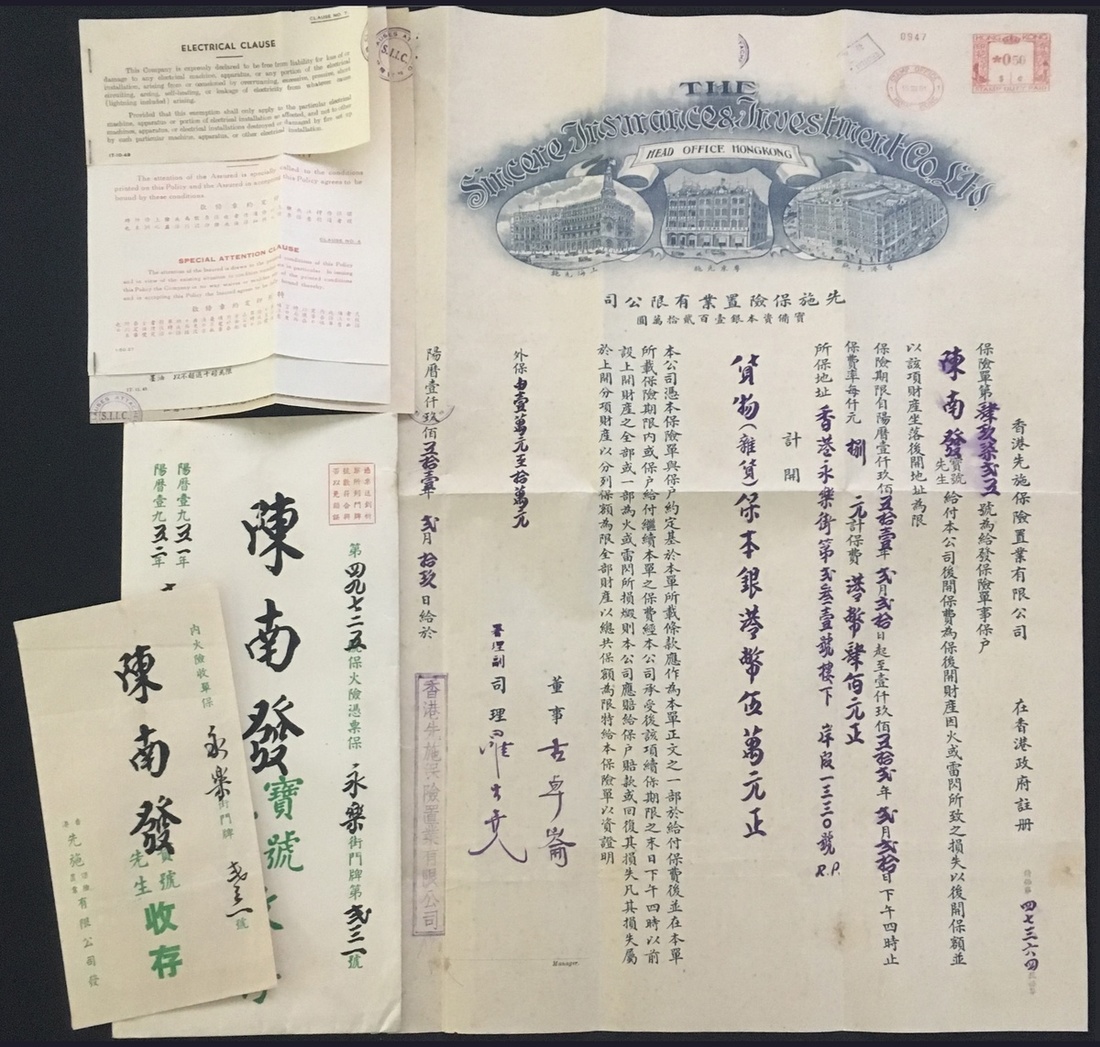 CLAUSE NO.
ELECTRICAL CLAUSE
This Company is expressly declared to be free from liability for loss of or
damage to any electrical machine, apparatus, or any portion of the electrical
installation, arising from or occasioned by overrunning, excessive pressure, short
circuiting, arcing, self-heating, or leakage of electricity from whatever cause
(lightning included) arising.
Provided that this exemption shall only apply to the particular electrical
machine, apparatus or portion of electrical installation so affected, and not to other
machines, apparatus or electrical installations destroyed or damaged by fire set up
by such particular machine, apparatus, or other electrical installation.
S.I.I.C.
The attention of the Assured is specially called to the conditions
printed on this Policy and the Assured in accepting this Policy agrees to be
bound by these conditions.
CLAUSE NO. 4
SPECIAL ATTENTION CLAUSE
S.I.I.C.
0947
0.50
THE
Sincere Insurance & Investment Co. Ltd.
HEAD OFFICE HONGKONG
司公限有業置險保施先
圓萬拾貳百壹銀本資備實
香港先施保險置業有限公司 在香港政府註册
保險單第肆玖柒貳五號為給發保險單事保戶
陳南發寶號先生給付本公司後開保費為保後開財產因火或雷閃所致之損失以後開保額並
以該項財產坐落後開地址為限
保險期限自陽曆壹仟玖佰五拾壹年貳月貳拾日起至壹仟玖佰五拾貳年貳月貳拾日下午四時止
保費率每仟元捌元計保費港幣肆佰元正
所保地址香港永樂街第貳叁壹號樓下 岸段一三三〇號 R.P.
計開
貨物(雜貨)保本銀港幣伍萬元正
本公司憑本保險單與保戶約定基於本單所載條款應作為本單正文之一部於給付保費後並在本單
所載保險期限內或保戶給付繼續本單之保費經本公司承受後該項續保期限之末日下午四時以前
設上開財產之全部或一部為火或雷閃所損燬則本公司應賠給保戶賠款或回復其損失凡其損失屬
於上開分項財產以分列保額為限全部財產以總共保額為限特給本保險單以資證明
外保由壹萬元至拾萬元
董事
署理副司理
陽曆壹仟玖佰五拾壹年貳月拾玖日給於
香港先施保險置業有限公司
Manager.
四七三六四
第四九七二五號保火險憑票保永樂街門牌第貳三一號
陳南發寶號
陽曆一九五一年
陽曆一九五二年
內火險收單保永樂街門牌貳三一號
陳南發寶號先生收存
香港先施保險置業有限公司發